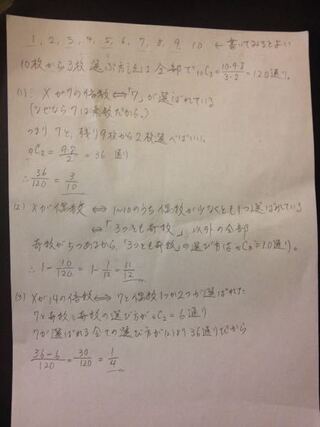 1, 2, 3, 4, 5, 6, 7, 8, 9 10 ← 書いてみるとよい
10枚から3枚選ぶ方法は全部で ₁₀C₃ = 10·9·8/3·2 = 120通り。
(1) Xが7の倍数 ⇔「7」が選ばれている
(なぜなら7は素数だから。)
つまり7と、残り9枚から2枚選べばいい。
₉C₂ = 9·8/2 = 36通り
∴ 36/120 = 3/10
(2) Xが偶数 ⇔ 1~10のうち偶数が少なくとも1つ選ばれている
⇔「3つとも奇数」以外の全部
奇数が5つあるから「3つとも奇数」の選び方は ₅C₃ = 10通り。
∴ 1 - 10/120 = 1 - 1/12 = 11/12
(3) Xが14の倍数 ⇔ 7と偶数1つか2つが選ばれた
7と奇数と奇数の選び方が ₄C₂ = 6通り
7が選ばれる全ての選び方が(1)より36通りだから
36-6/120 = 30/120 = 1/4